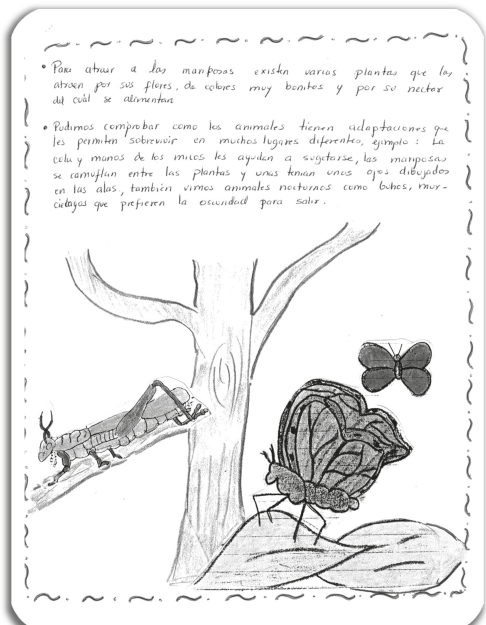 • Para atraer a las mariposas existen varias plantas que las
atraen por sus flores, de colores muy bonitos y por su nectar
del cuál se alimentan
• Pudimos comprobar como los animales tienen adaptaciones que
les permiten sobrevivir en muchos lugares diferentes, ejemplo: La
cola y manos de los micos les ayudan a sugetarse, las mariposas
se camuflan entre las plantas y unas tenían unos ojos dibujados
en las alas, también vimos animales nocturnos como buhos, mur-
cielagos que prefieren la oscuridad para salir.